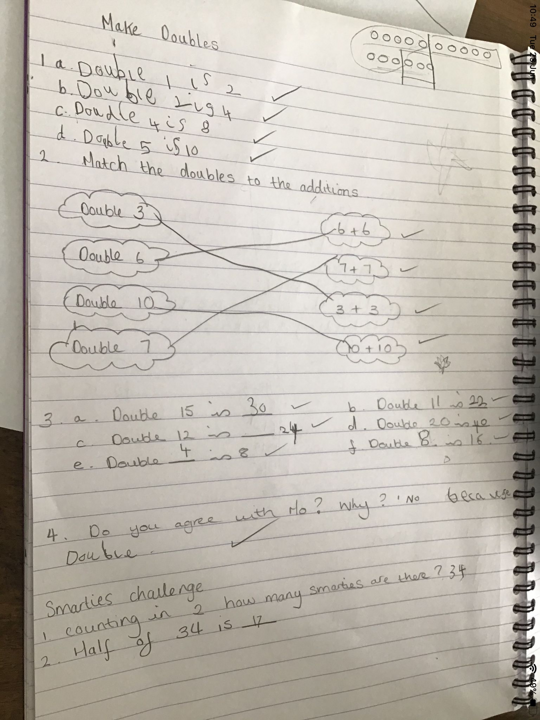 Make Doubles
1 a. Double 1 is 2
b. Double 2 is 4
c. Double 4 is 8
d. Double 5 is 10
2. Match the doubles to the additions
Double 3
6+6
Double 6
7+7
Double 10
3 + 3
Double 7
10+10
3. a. Double 15 is 30
b. Double 11 is 22
c Double 12 is 24
d. Double 20 is 40
e. Double 4 is 8
f Double 8 is 16
4. Do you agree with Mo? Why? No because
Double.
Smarties challenge
1 counting in 2 how many smarties are there? 34
2. Half of 34 is 17